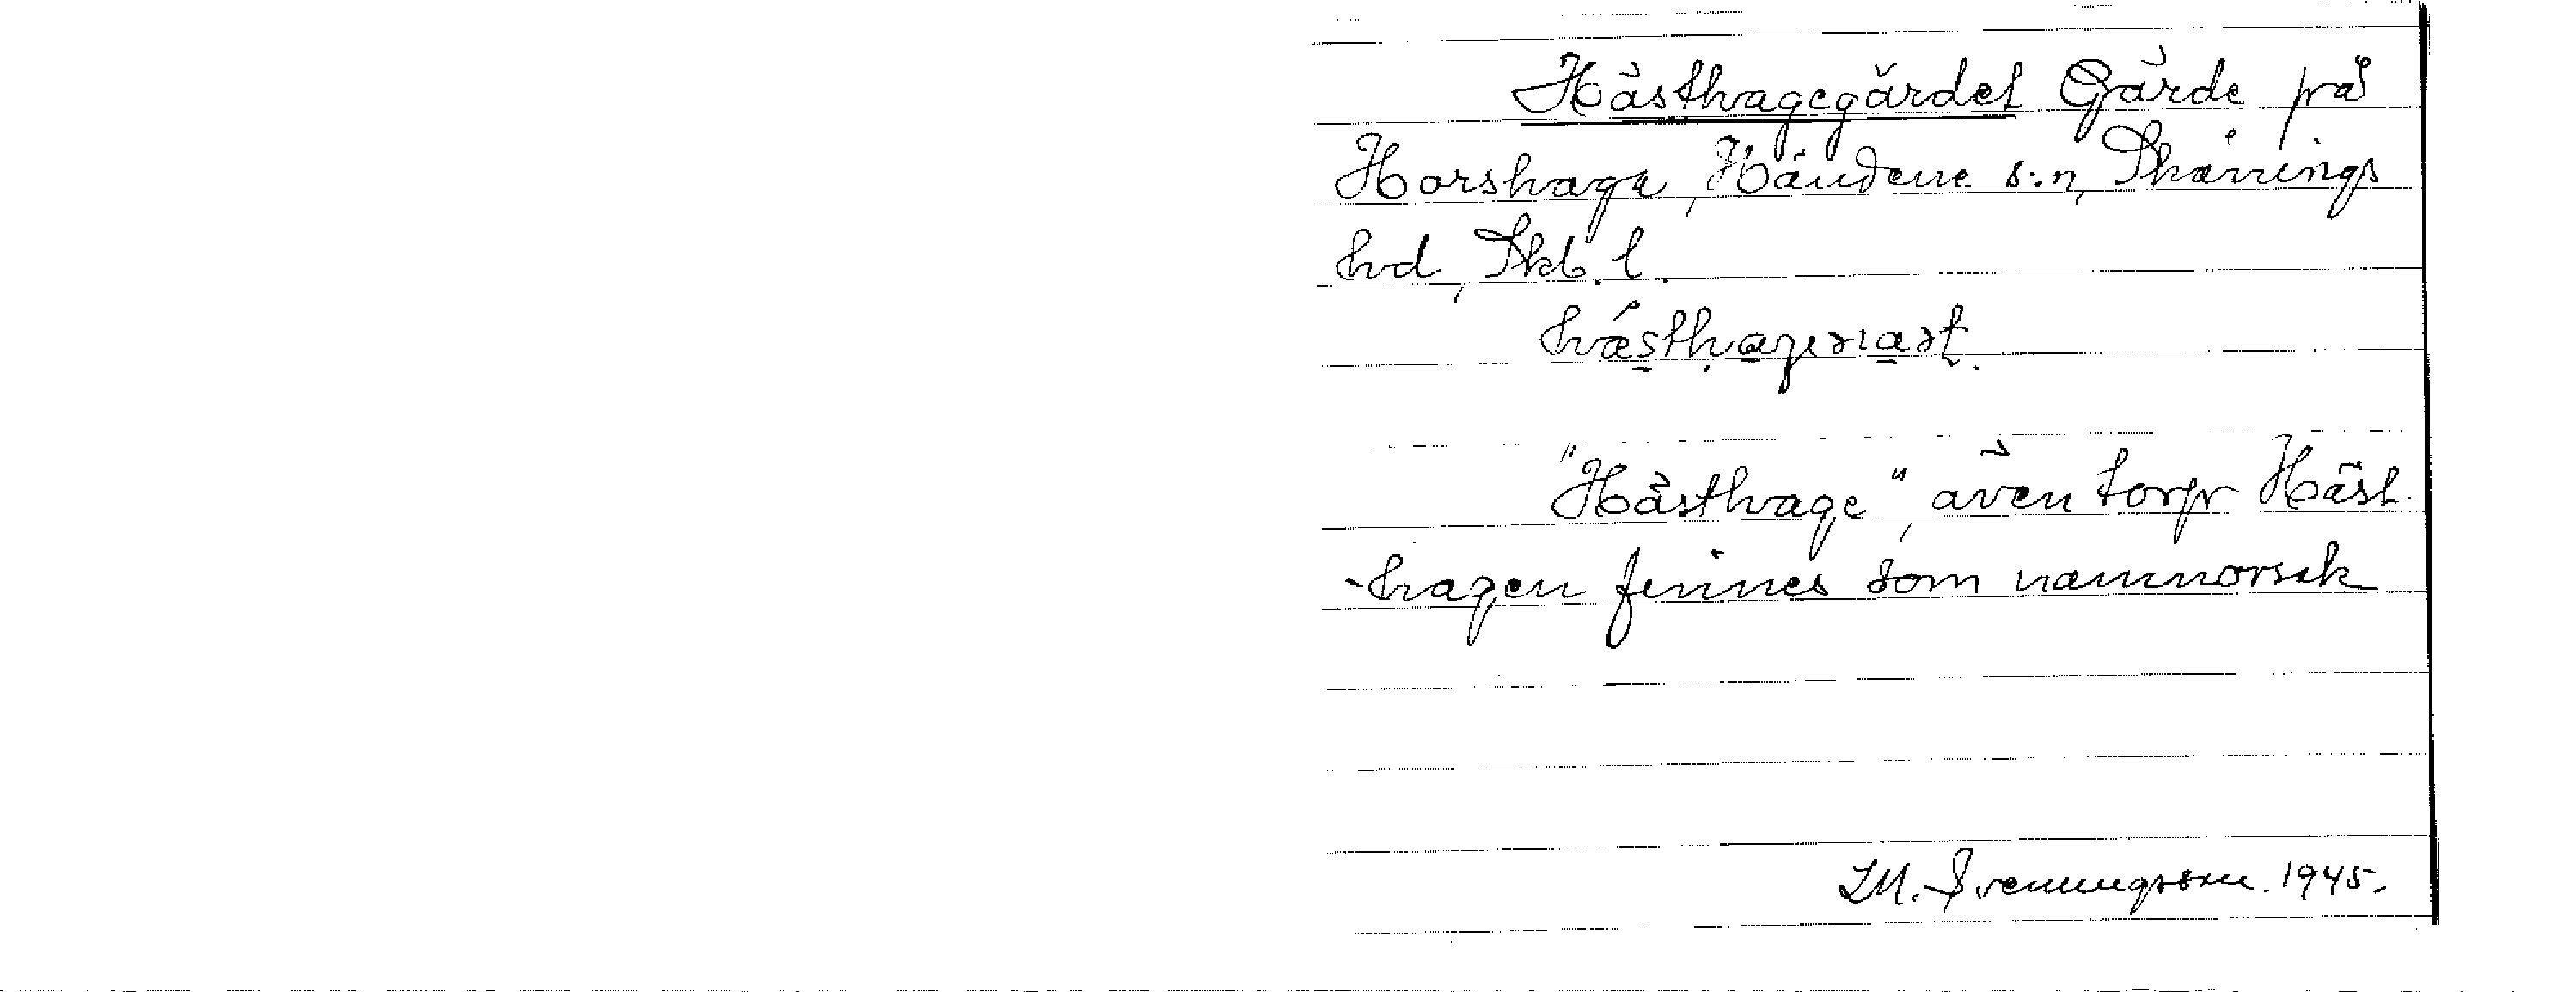 Hästhagegärdet Gärde på
Horshaga, Händene s:n, Skånings
hd, Skb. l.
"Hästhage", även torpr Häst-
-hagen finnes som namnorsak
M. Sveningsson. 1945.